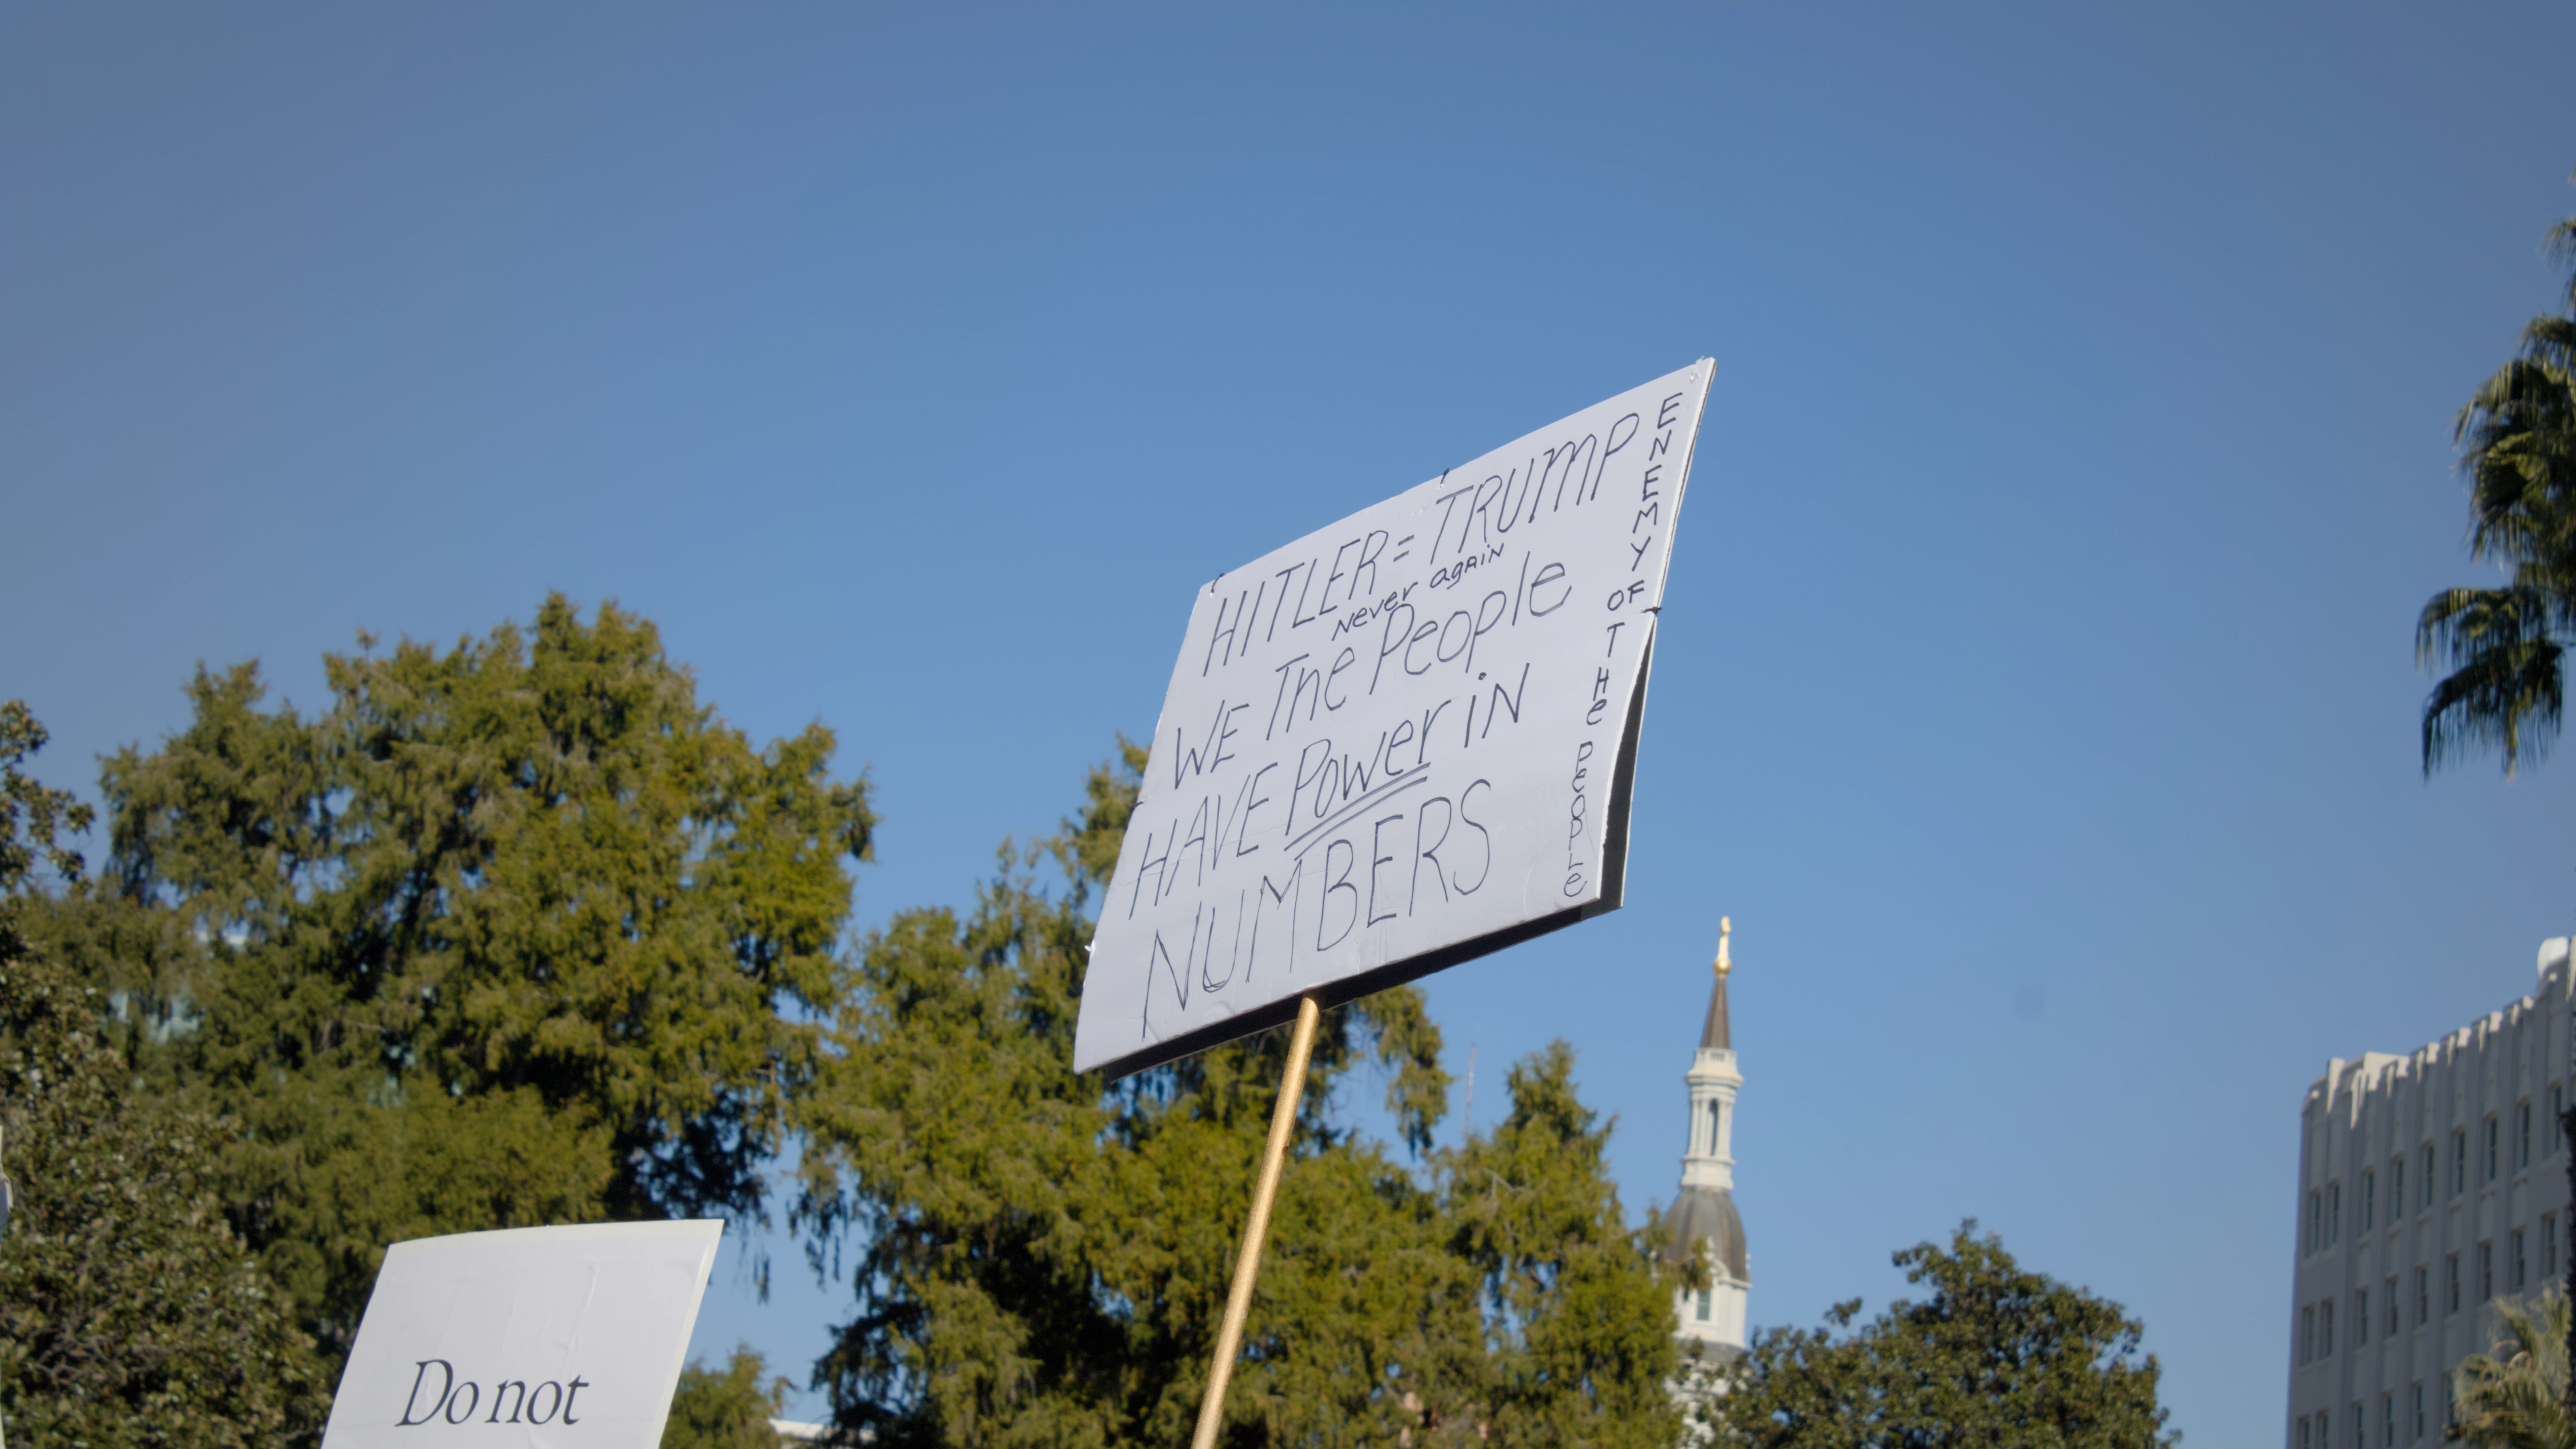 HITLER = TRUMP
Never again
WE The People
HAVE Power iN
NUMBERS
ENEMY OF THe PeOPLe
Do not